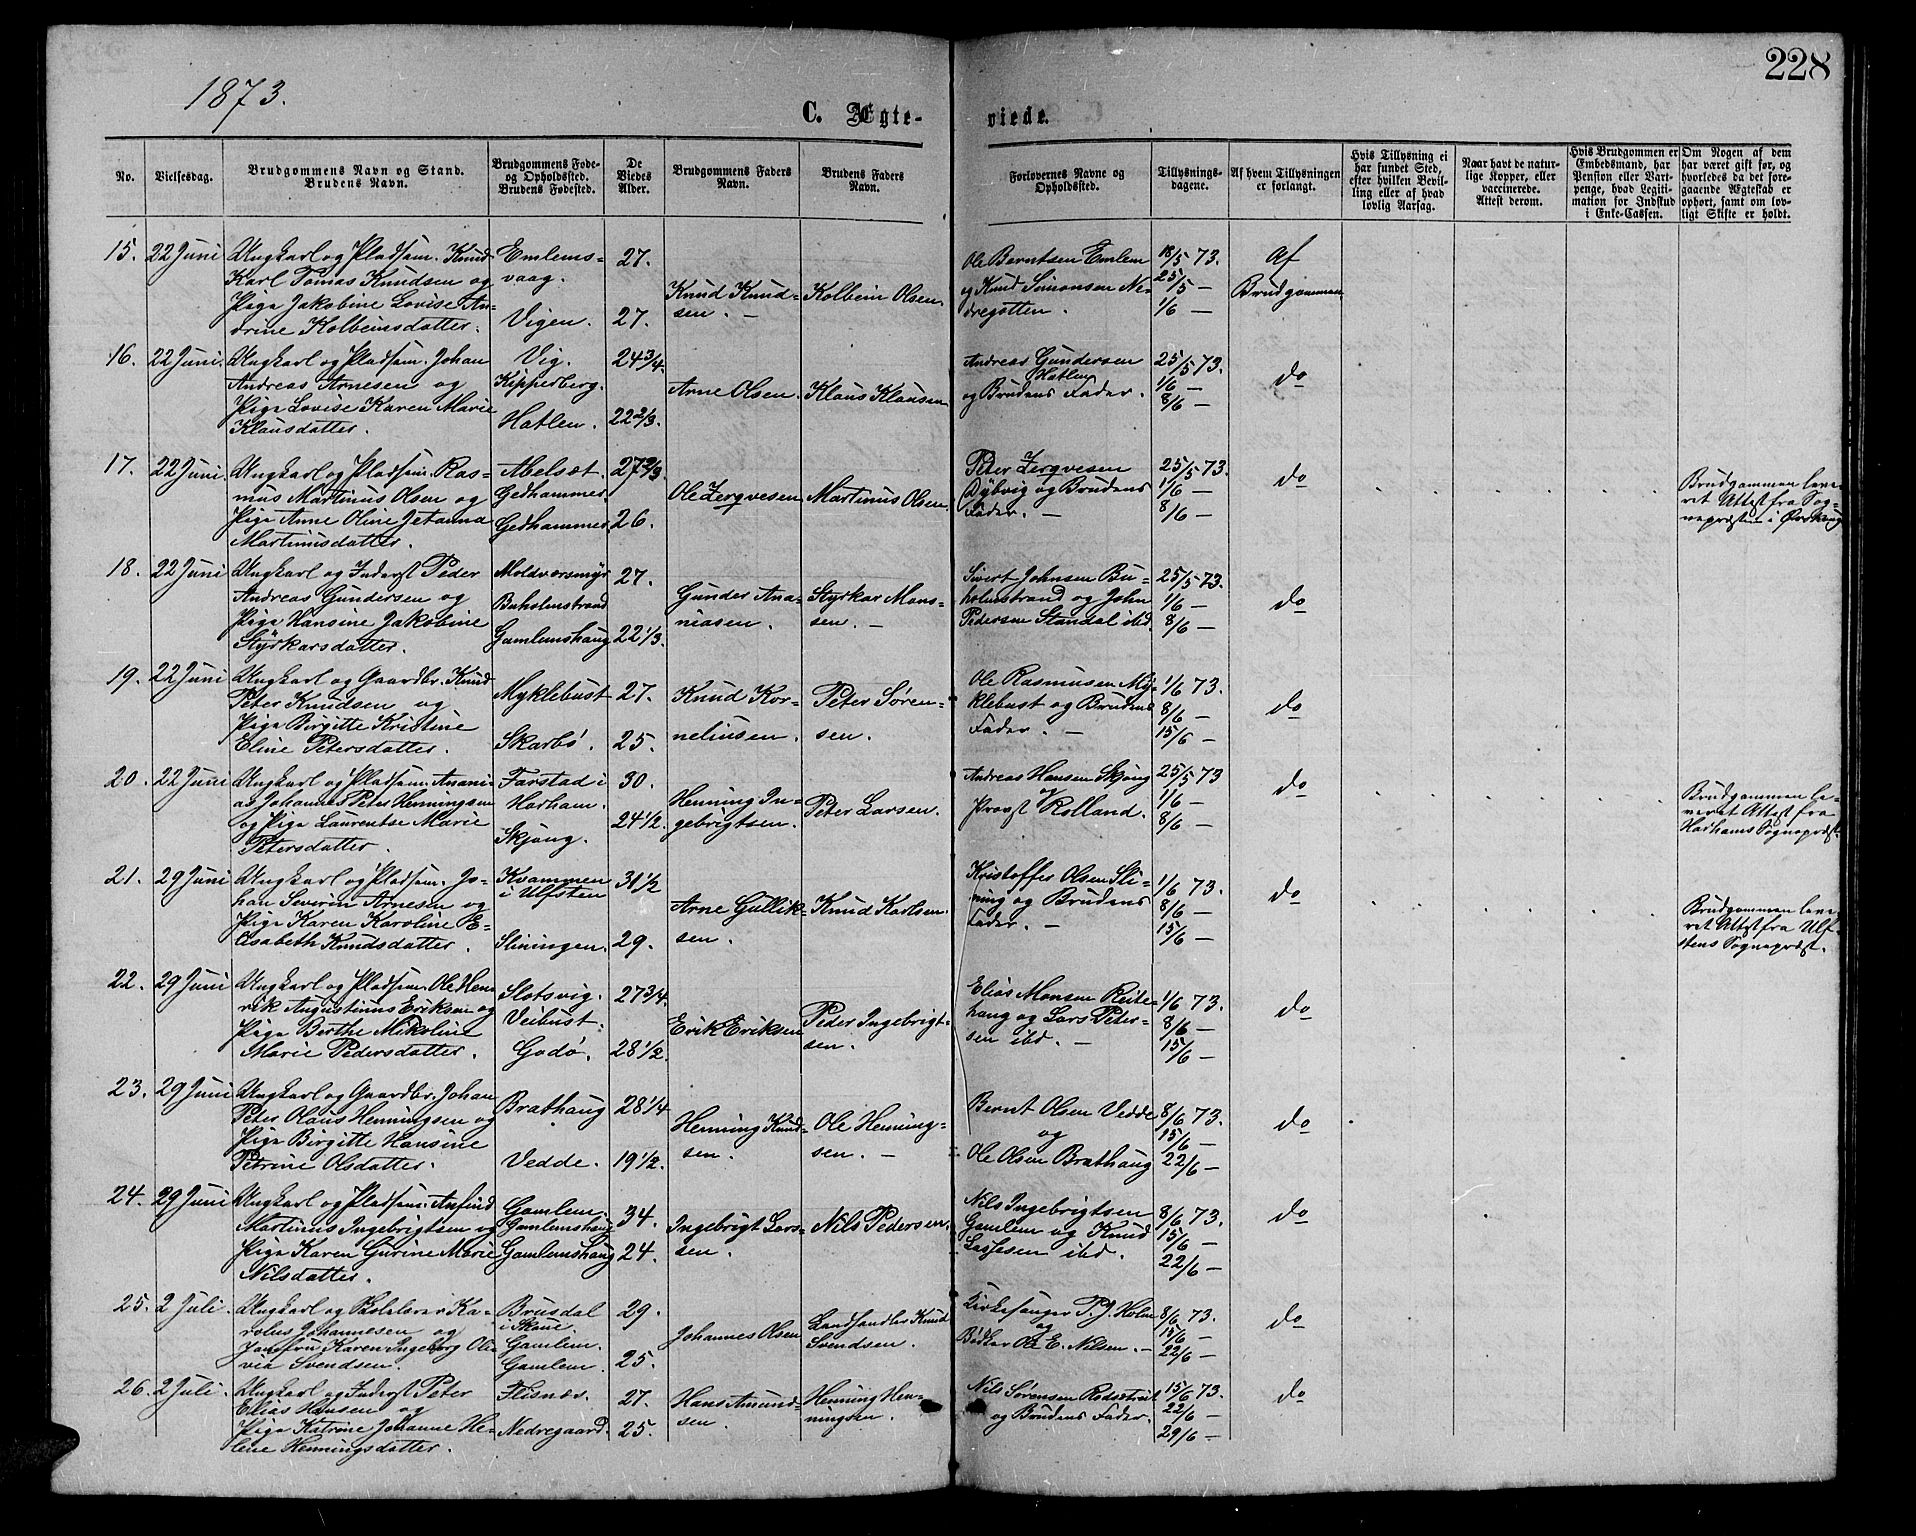 1873.
228
C. Ægte-
viede.
No.
Vielsesdag.
Brudgommens Navn og Stand.
Brudens Navn.
Brudgommens Føde-
og Opholdssted.
Brudens Fødested.
De
Viedes
Alder.
Brudgommens Faders
Navn.
Brudens Faders
Navn.
Forlovernes Navne og
Opholdssted.
Tillysnings-
dagene.
Af hvem Tillysningen
er forlangt.
Hvis Tillysning ei
har fundet Sted,
efter hvilken Bevil-
ling eller af hvad
lovlig Aarsag.
Naar havt de natur-
lige Kopper, eller
vaccinerede.
Attest derom.
Hvis Brudgommen er
Embedsmand, har
Pension eller Vart-
penge, hvad Legiti-
mation for Indskud
i Enke-Cassen.
Om Nogen af dem
har været gift før, og
hvorledes da det fore-
gaaende Ægteskab er
ophørt, samt om lov-
ligt Skifte er holdt.
15. 22 Juni Ungkarl og Pladsem. Knud
Karl Tomas Knudsen og
Pige Jakobine Lovise An-
drine Kolbeinsdatter.
Emlems-
vaag.
Vigen.
27.
27.
Knud Knud-
sen. —
Kolbein Olsen.
Ole Berntsen Emlem
og Knud Simonsen Ne-
dregotten.
18/5 73.
25/5 —
1/6 —
Af
Brudgommen
16. 22 Juni. Ungkarl og Pladsem. Johan
Andreas Arnesen og
Pige Lovise Karen Marie
Klausdatter.
Vig.
Kipperberg.
Hatlen.
24 3/4.
22 2/3.
Arne Olsen.
Klaus Klausen
Andreas Gundersen
Hatlen
og Brudens Fader.
25/5 73.
1/6 —
8/6 —
do
17. 22 Juni Ungkarl og Pladsem. Ras-
mus Martinus Olsen og
Pige Anne Oline Jetanna
Martinusdatter.
Abelsæt.
Gedhammer.
Gedhammer
27 2/3.
26.
Ole Zergvesen
Martinus Olsen.
Peter Zergvesen
Dybvig og Brudens
Fader. —
25/5 73.
1/6 —
8/6 —
do
Brudgommen leve-
ret Attest fra Sog-
nepræsten i
18. 22 Juni Ungkarl og Inderst Peder
Andreas Gundersen og
Pige Hansine Jakobine
Styrkarsdatter.
Moldværsmyr
Buholmstrand
Gamlemshaug
27.
22 1/3.
Gunder Ana-
niasen.
Styrkar Mons-
sen. —
Sivert Johnsen Bu-
holmstrand og John
Pedersen Standal ibd.
25/5 73.
1/6 —
8/6 —
do
19. 22 Juni Ungkarl og Gaardbr. Knud
Peter Knudsen og
Pige Birgitte Kristine
Eline Petersdatter.
Myklebust
Skarbø.
27.
25.
Knud Kor-
neliusen.
Peter Søren-
sen.
Ole Rasmusen My-
klebust og Brudens
Fader. —
1/6 73.
8/6 —
15/6 —
do
20. 22 Juni Ungkarl og Pladsem. Anani-
as Johannes Peter Henningsen
og Pige Laurentse Marie
Petersdatter.
Farstad i
Harham.
Skjong.
30.
24 1/2.
Henning In-
gebrigtsen.
Peter Larsen.
Andreas Hansen Skjong
og
Provst Rolland.
25/5 73
1/6 —
8/6 —
do
Brudgommen le-
veret Attest fra
Harhams Sognepræst.
21. 29 Juni Ungkarl og Pladsem. Jo-
han Severin Arnesen og
Pige Karen Karoline E-
lisabeth Knudsdatter.
Kvammen
i Ulfsten
Sliningen.
31 1/2
29.
Arne Gullik-
sen.
Knud Karlsen.
Kristoffer Olsen Sli-
ning og Brudens
Fader. —
1/6 73.
8/6 —
15/6 —
do
Brudgommen leve-
ret Attest fra Ulf-
stens Sognepræst.
22. 29 Juni Ungkarl og Pladsem. Ole Hen-
rik Augustinus Eriksen og
Pige Berthe Nikoline
Marie Pedersdatter.
Slotsvig.
Veibust.
Godø.
27 3/4.
28 1/2.
Erik Eriksen
Peder Ingebrigt-
sen.
Elias Monsen Reite-
haug og Lars Peter-
sen ibd. —
1/6 73.
8/6 —
15/6 —
do
23. 29 Juni Ungkarl og Gaardbr. Johan
Peter Olaus Henningsen og
Pige Birgitte Hansine
Petrine Olsdatter.
Brathaug
Vedde.
28 1/4
19 1/2.
Henning Knud-
sen.
Ole Henning-
sen. —
Bernt Olsen Vedde
og
Ole Olsen Brathaug
8/6 73.
15/6 —
22/6 —
do
24. 29 Juni Ungkarl og Pladsem. Anfind
Martinus Ingebrigtsen og
Pige Karen Gurine Marie
Nilsdatter.
Gamlem.
Gamlemshaug
Gamlemshaug
34.
24.
Ingebrigt Lars-
sen.
Nils Pedersen.
Nils Ingebrigtsen
Gamlem og Knud
Lassesen ibd.
8/6 73.
15/6 —
22/6 —
do
25. 2 Juli. Ungkarl og Skolelærer Ka-
rolus Johannesen og
Jomfru Karen Ingeborg Oli-
via Svendsen.
Brusdal
i Skoue
Gamlem.
Gamlem.
29.
25.
Johannes Olsen
Landhandler Knud
Svendsen.
Kirkesanger P. J. Holm
og
Bødker Ole E. Nilsen. —
8/6 73.
15/6 —
22/6 —
do
26. 2 Juli. Ungkarl og Inderst Peter
Elias Hansen og
Pige Katrine Johanne He-
lene Henningsdatter.
Flisnæs.
Nedregaard
27.
25.
Hans Amund-
sen.
Henning Hen-
ningsen.
Nils Sørensen Rødsætvit
og Brudens Fader.
15/6 73.
22/6 —
29/6 —
do